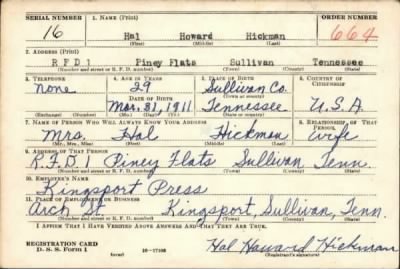 SERIAL NUMBER 1. NAME (Print) ORDER NUMBER
16 Hal Howard Hickman 664
(First) (Middle) (Last)
2. ADDRESS (Print)
R F D 1 Piney Flats Sullivan Tennessee
(Number and street or R. F. D. number) (Town) (County) (State)
3. TELEPHONE 4. AGE IN YEARS 5. PLACE OF BIRTH 6. COUNTRY OF CITIZENSHIP
none 29 Sullivan Co.
DATE OF BIRTH (Town or county)
Mar. 31, 1911 Tennessee U.S.A
(Exchange) (Number) (Mo.) (Day) (Yr.) (State or country)
7. NAME OF PERSON WHO WILL ALWAYS KNOW YOUR ADDRESS 8. RELATIONSHIP OF THAT PERSON
Mrs. Hal Hickman wife
(Mr., Mrs., Miss) (First) (Middle) (Last)
9. ADDRESS OF THAT PERSON
R.F.D 1 Piney Flats Sullivan Tenn.
(Number and street or R. F. D. number) (Town) (County) (State)
10. EMPLOYER'S NAME
Kingsport Press
11. PLACE OF EMPLOYMENT OR BUSINESS
Arch St Kingsport, Sullivan, Tenn.
(Number and street or R. F. D. number) (Town) (County) (State)
I AFFIRM THAT I HAVE VERIFIED ABOVE ANSWERS AND THAT THEY ARE TRUE.
REGISTRATION CARD
D. S. S. Form 1 (over) 16-17105 Hal Howard Hickman